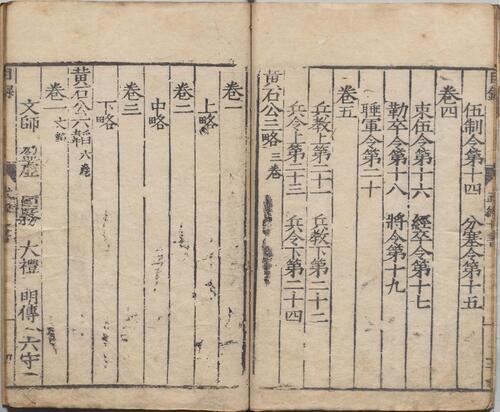 卷四
伍制令第十四 分塞令第十五
束伍令第十六 經卒令第十七
勒卒令第十八 將令第十九
踵軍令第二十
卷五
兵教上第二十一 兵教下第二十二
兵令上第二十三 兵令下第二十四
黃石公三略 三卷
卷一
上略
卷二
中略
卷三
下略
黃石公六韜 六卷
卷一 文韜
文師 盈虛 國務 大禮 明傳 六守
目錄